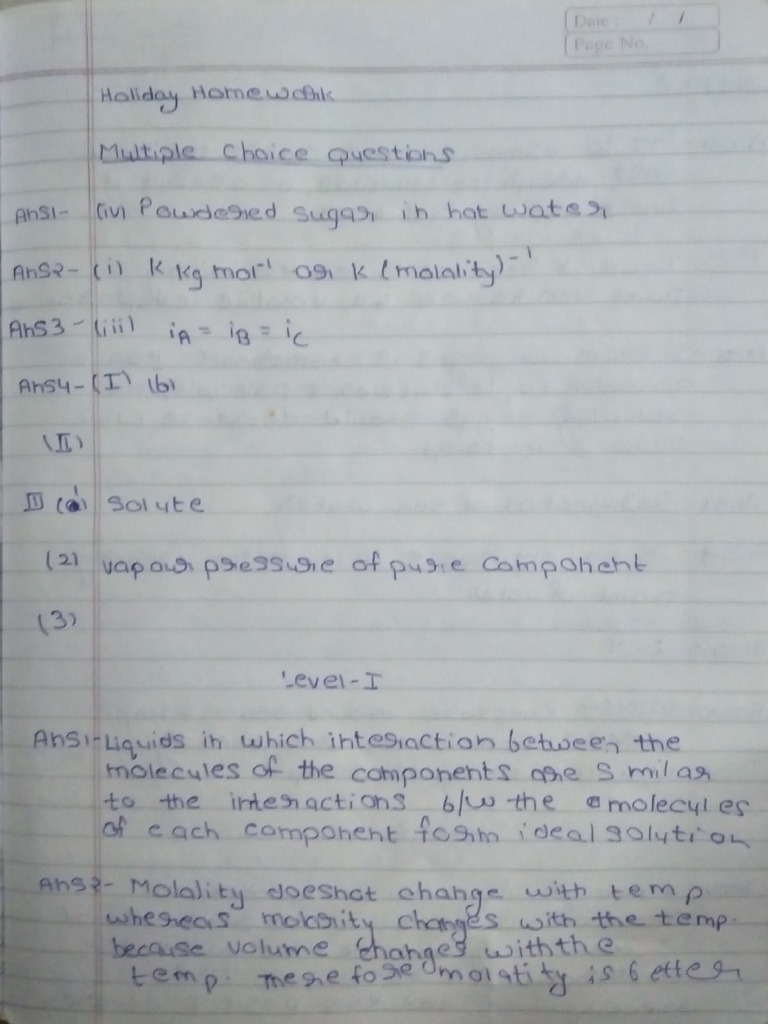 Date : / /
Page No.
Holiday Homework
Multiple Choice Questions
Ans1- (iv) Powdered sugar in hot water
Ans2- (i) K kg mol⁻¹ or K (molality)⁻¹
Ans3- (iii) iA = iB = iC
Ans4- (I) (b)
(II)
II (1) Solute
(2) vapour pressure of pure component
(3)
Level-I
Ans1- Liquids in which interaction between the
molecules of the components are S milar
to the interactions b/w the molecules
of each component form ideal solution
Ans2- Molality doesnot change with temp.
whereas molarity changes with the temp.
because volume changes with the
temp. Therefore molatity is better